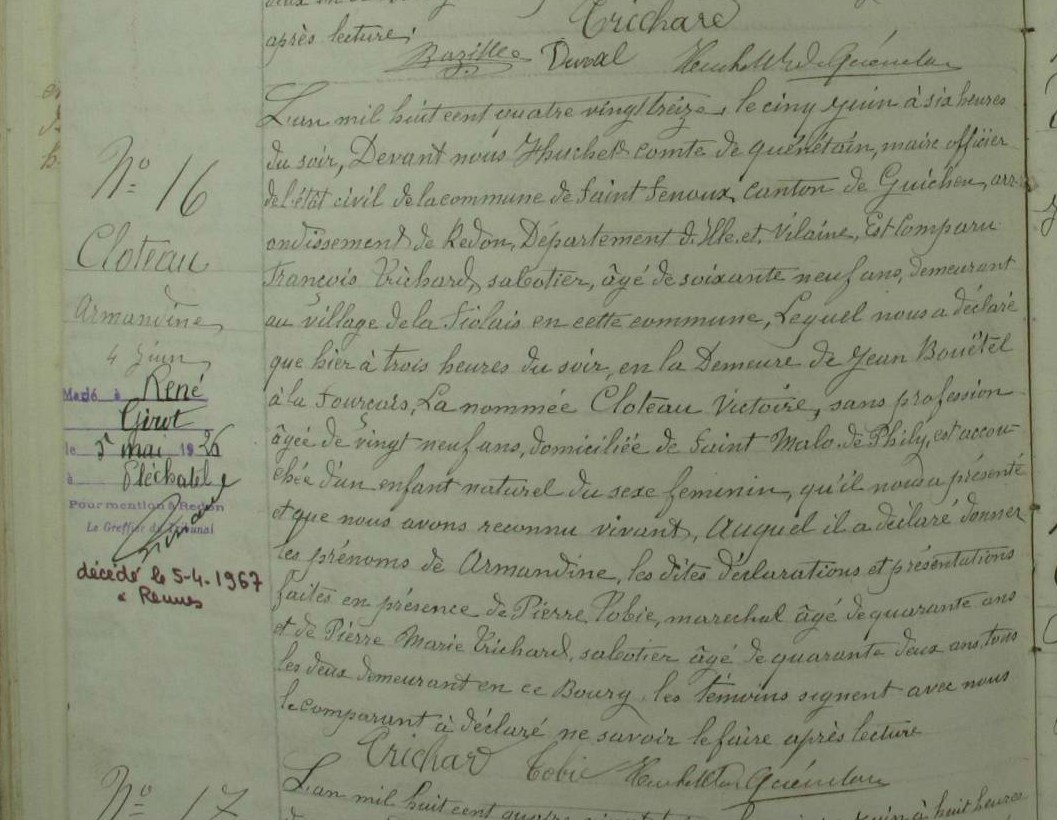 après lecture.
Trichard
Bazille Duval
N° 16
Cloteau
Armandine
4 Juin
Marié à René
Girot
le 3 mai 1926
à Pléchatel
Pour mention à Redon
Le Greffier du Tribunal
décédé le 5-4-1967
à Rennes
L'an mil huit cent quatre vingt treize, le cinq Juin à six heures
du soir, Devant nous Huchet comte de quénétain, maire officier
de l'état civil de la commune de Saint Senoux, canton de Guichen, arr-
ondissement de Redon, Département d'Ille-et-Vilaine, Est Comparu
François Trichard, sabotier, âgé de soixante neuf ans, demeurant
au village de la en cette commune, Lequel nous a déclaré
que hier à trois heures du soir, en la Demeure de Jean Bouëtel
à la La nommée Cloteau Victoire, sans profession
âgée de vingt neuf ans, domiciliée de Saint Malo de Phily, est accou-
chée d'un enfant naturel du sexe feminin, qu'il nous a présenté
et que nous avons reconnu vivant, Auquel il a déclaré donner
les prénoms de Armandine, les dites déclarations et présentations
faites en présence de Pierre Tobie, marechal âgé de quarante ans
et de Pierre Marie Trichard, sabotier âgé de quarante deux ans, tous
les deux demeurant en ce Bourg, les témoins signent avec nous
le comparant à déclaré ne savoir le faire après lecture
Trichard Tobie
N° 17
L'an mil huit cent quatre Juin à huit heures